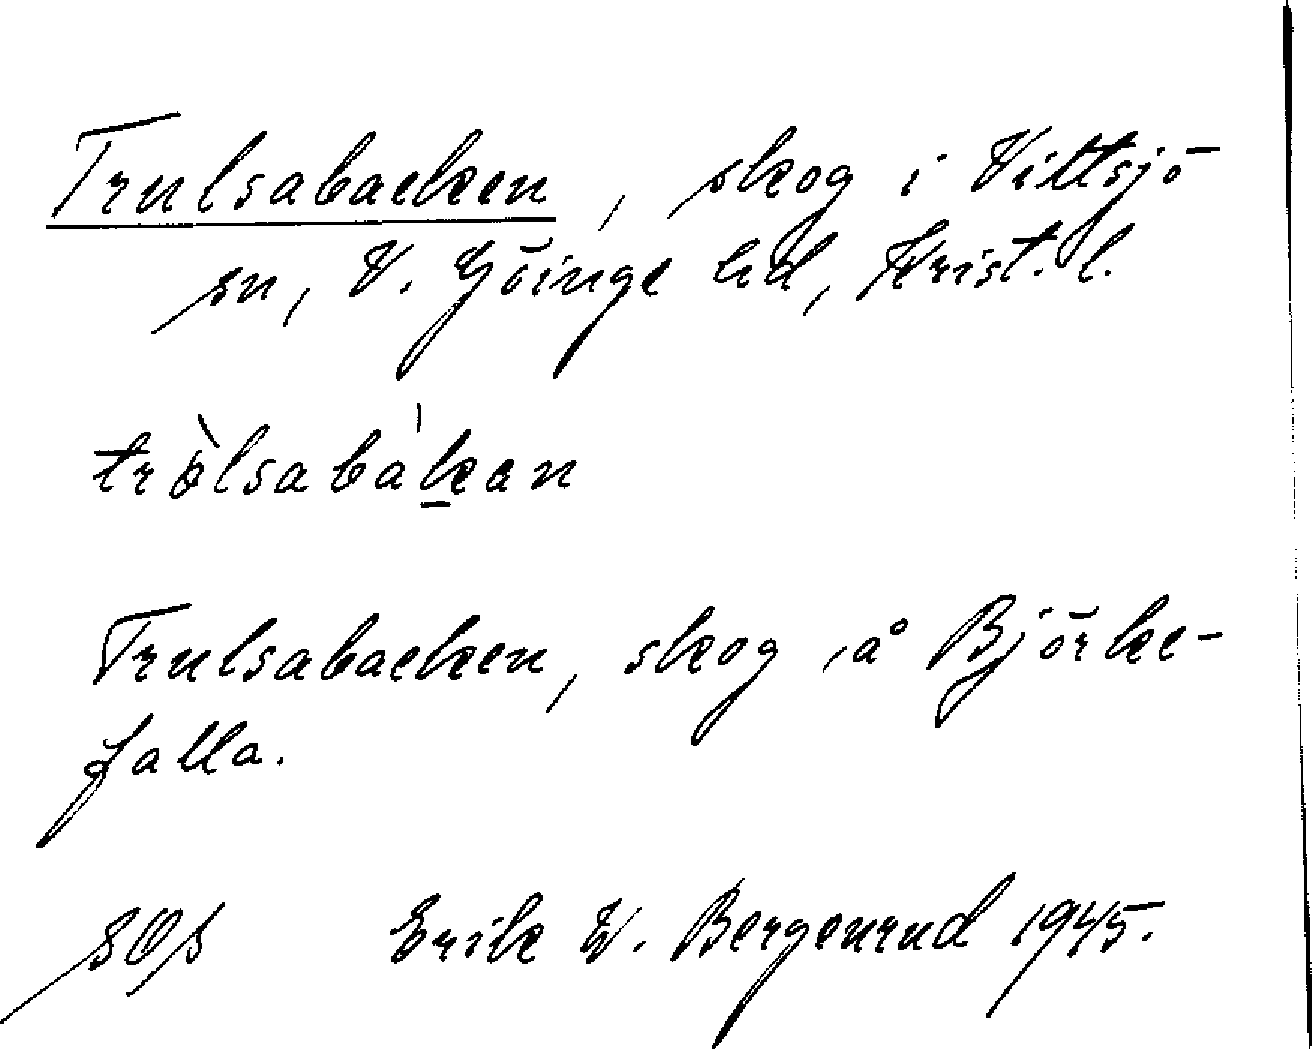 Trulsabacken, skog i Vittsjö
sn, V. Göinge hd, Krist. l.
tròlsabàkan
Trulsabacken, skog på Björke-
falla.
Erik W. Bergenrud 1945.